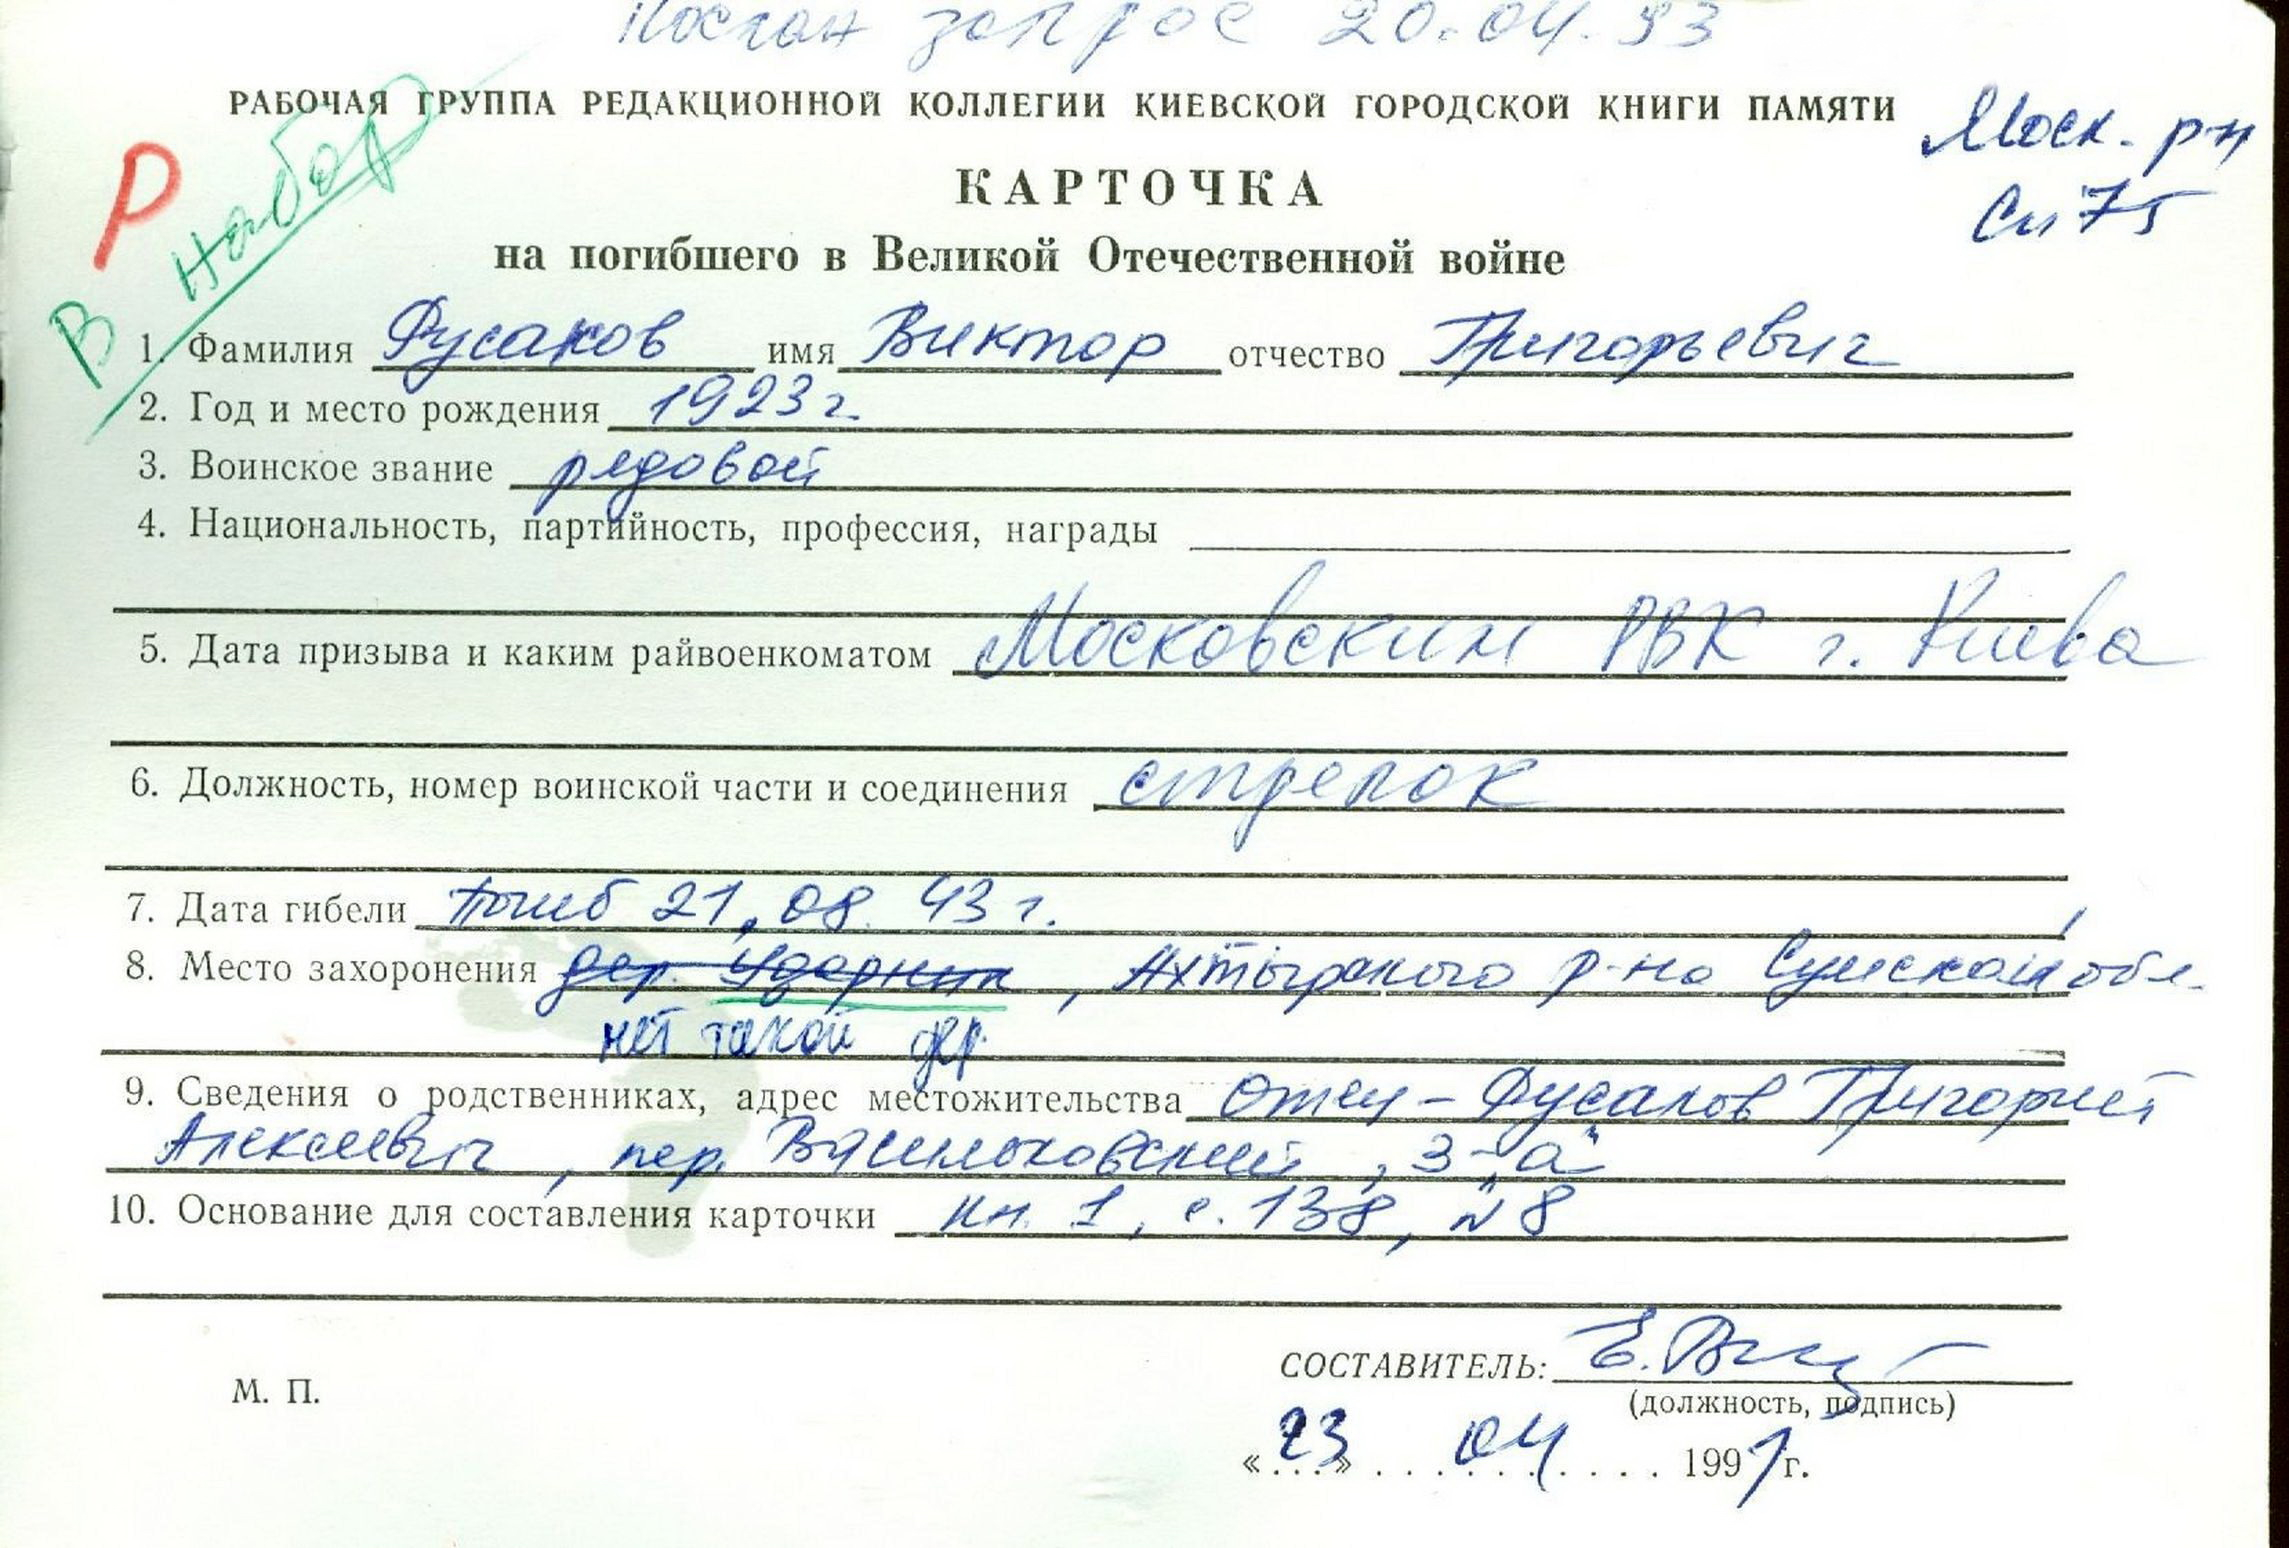 Послан запрос 20.04.93
РАБОЧАЯ ГРУППА РЕДАКЦИОННОЙ КОЛЛЕГИИ КИЕВСКОЙ ГОРОДСКОЙ КНИГИ ПАМЯТИ
Моск. р-н
Р
В набор
КАРТОЧКА
Сп 75
на погибшего в Великой Отечественной войне
1. Фамилия Фусаков имя Виктор отчество Григорьевич
2. Год и место рождения 1923 г.
3. Воинское звание рядовой
4. Национальность, партийность, профессия, награды
5. Дата призыва и каким райвоенкоматом Московским РВК г. Киева
6. Должность, номер воинской части и соединения стрелок
7. Дата гибели Погиб 21.08.43 г.
8. Место захоронения дер. Ударник, Ахтырского р-на Сумской обл.
нет такой дер.
9. Сведения о родственниках, адрес местожительства Отец - Фусаков Григорий
Алексеевич, пер. Васильковский, 3-"а"
10. Основание для составления карточки кн. 1, с. 138, №8
СОСТАВИТЕЛЬ: Е.
(должность, подпись)
М. П.
«23» 04 1991 г.